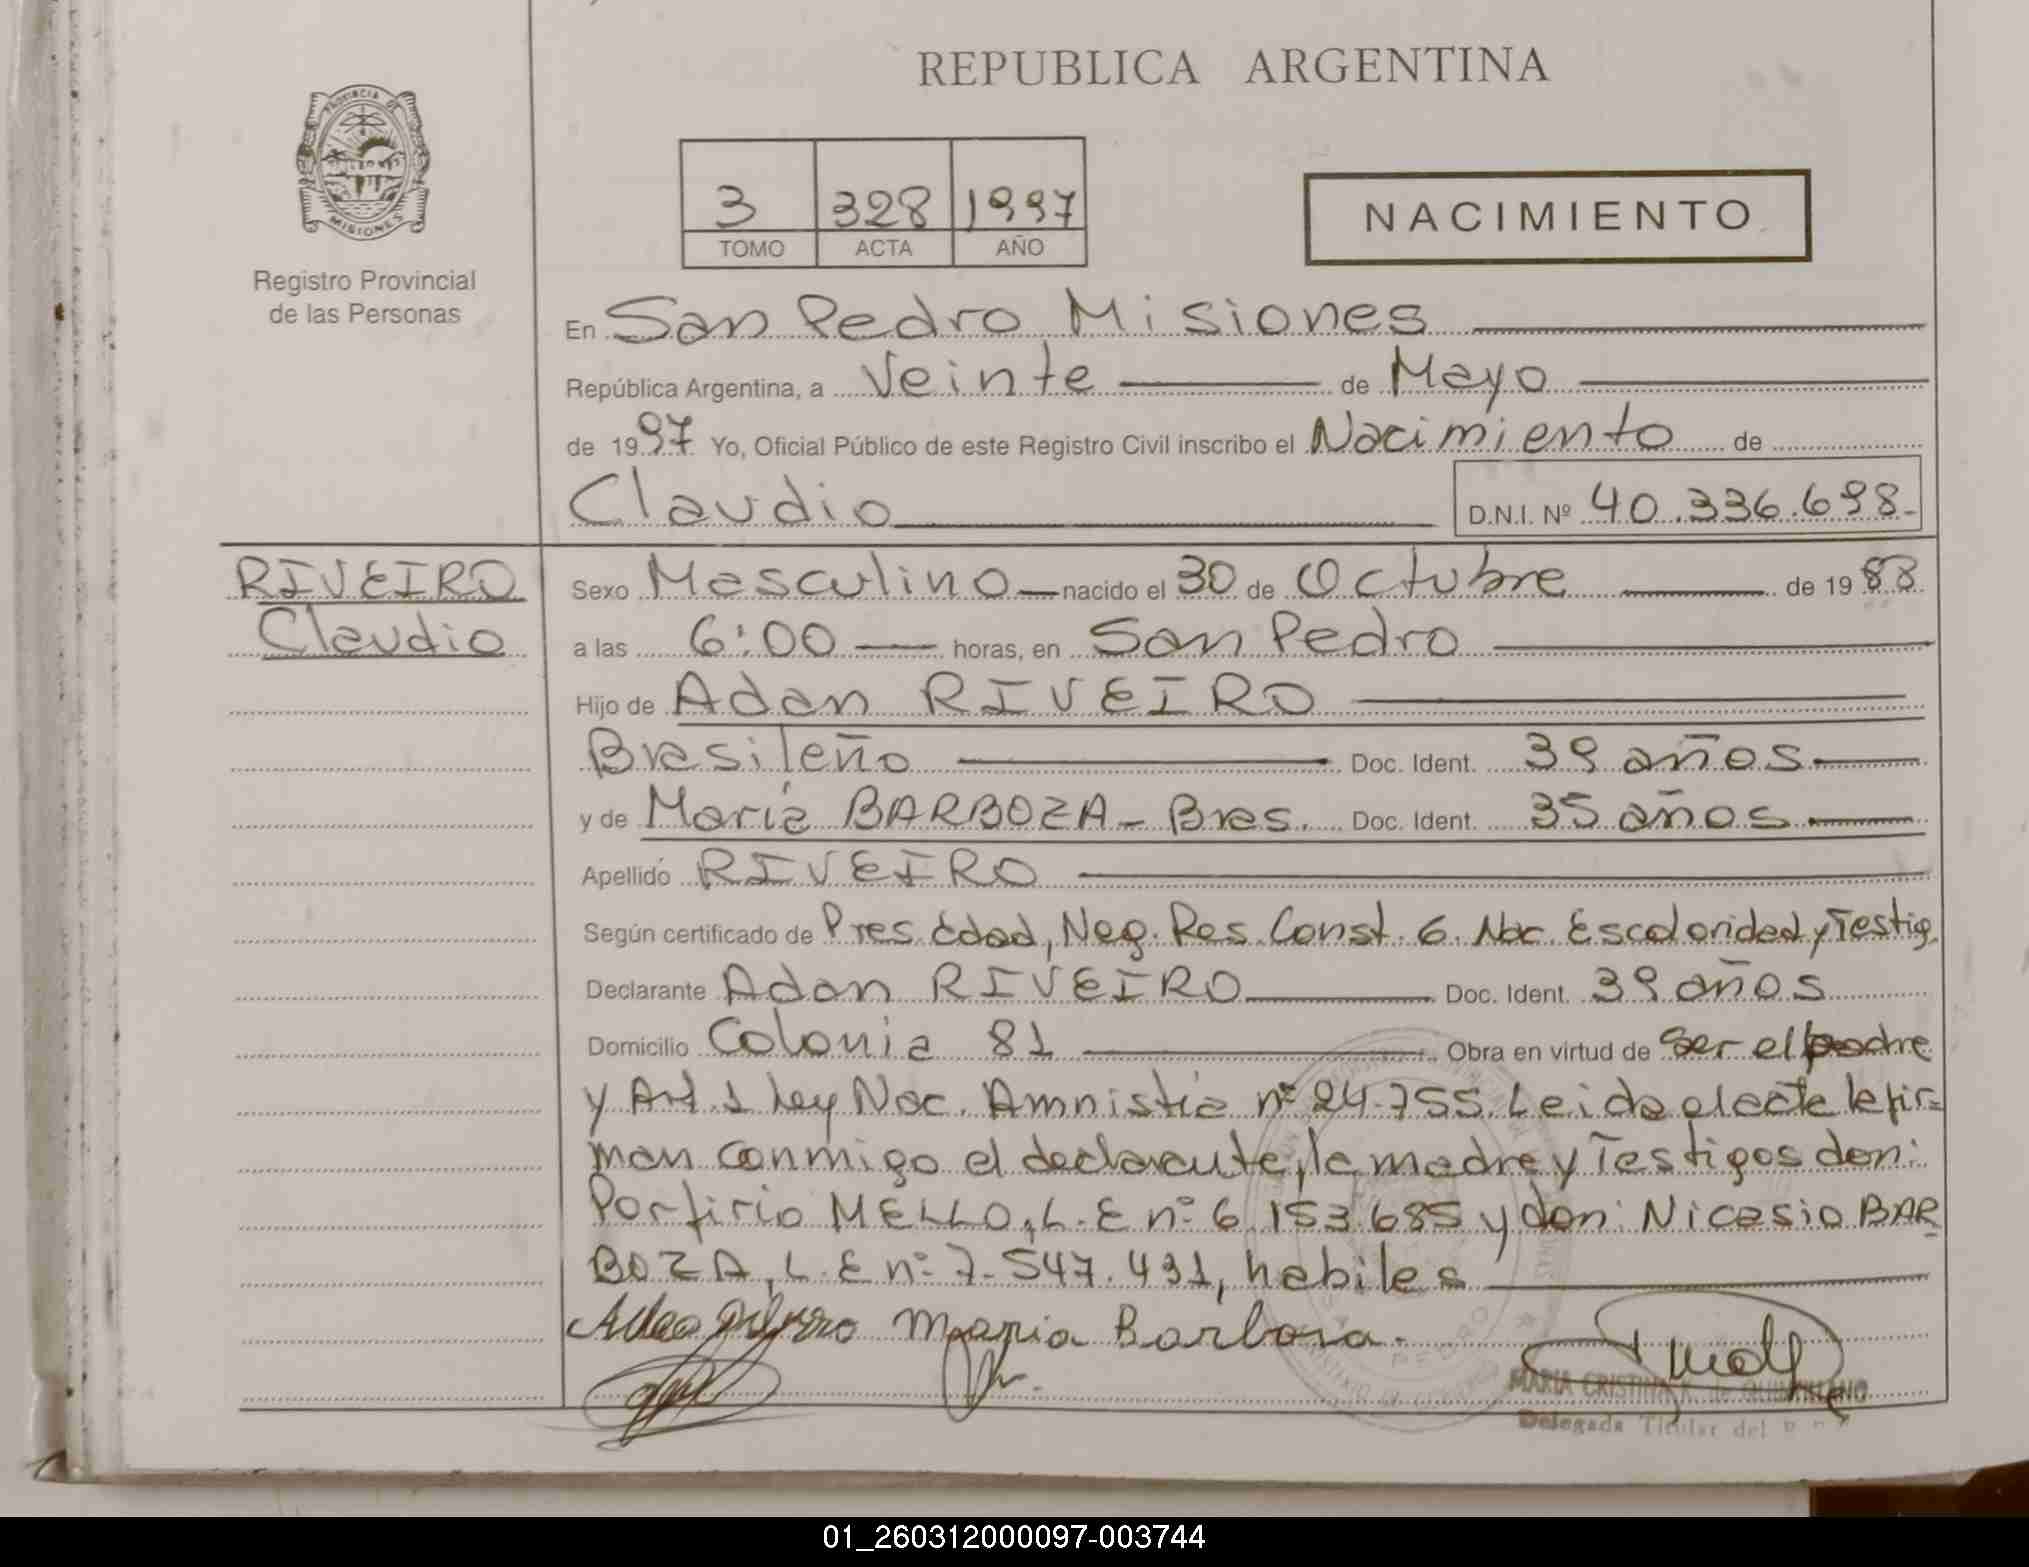 REPUBLICA ARGENTINA
PROVINCIA DE
MISIONES
Registro Provincial
de las Personas
3 328 1997
TOMO ACTA AÑO
NACIMIENTO
En San Pedro Misiones
República Argentina, a Veinte de Mayo
de 1997 Yo, Oficial Público de este Registro Civil inscribo el Nacimiento de
Claudio D.N.I. Nº 40.336.698.-
RIVEIRO
Claudio
Sexo Masculino nacido el 30 de Octubre de 1988
a las 6:00 horas, en San Pedro
Hijo de Adan RIVEIRO
Brasileño Doc. Ident. 39 años
y de María BARBOZA - Bras. Doc. Ident. 35 años
Apellido RIVEIRO
Según certificado de Pres. Edad, Neg. Res. Const. 6. Nac. Escolaridad y Testig.
Declarante Adan RIVEIRO Doc. Ident. 39 años
Domicilio Colonia 81 Obra en virtud de Ser el padre
y Art. 1 Ley Nac. Amnistía nº 24.755. Leida el acta la fir=
man conmigo el declarante, la madre y Testigos don:
Porfirio MELLO, L.E nº 6.153.685 y don: Nicasio BAR
BOZA, L.E nº 7.547.431, habiles
Maria Barboza.
PEDRO
MARIA CRISTINA
Delegada Titular del
01_260312000097-003744